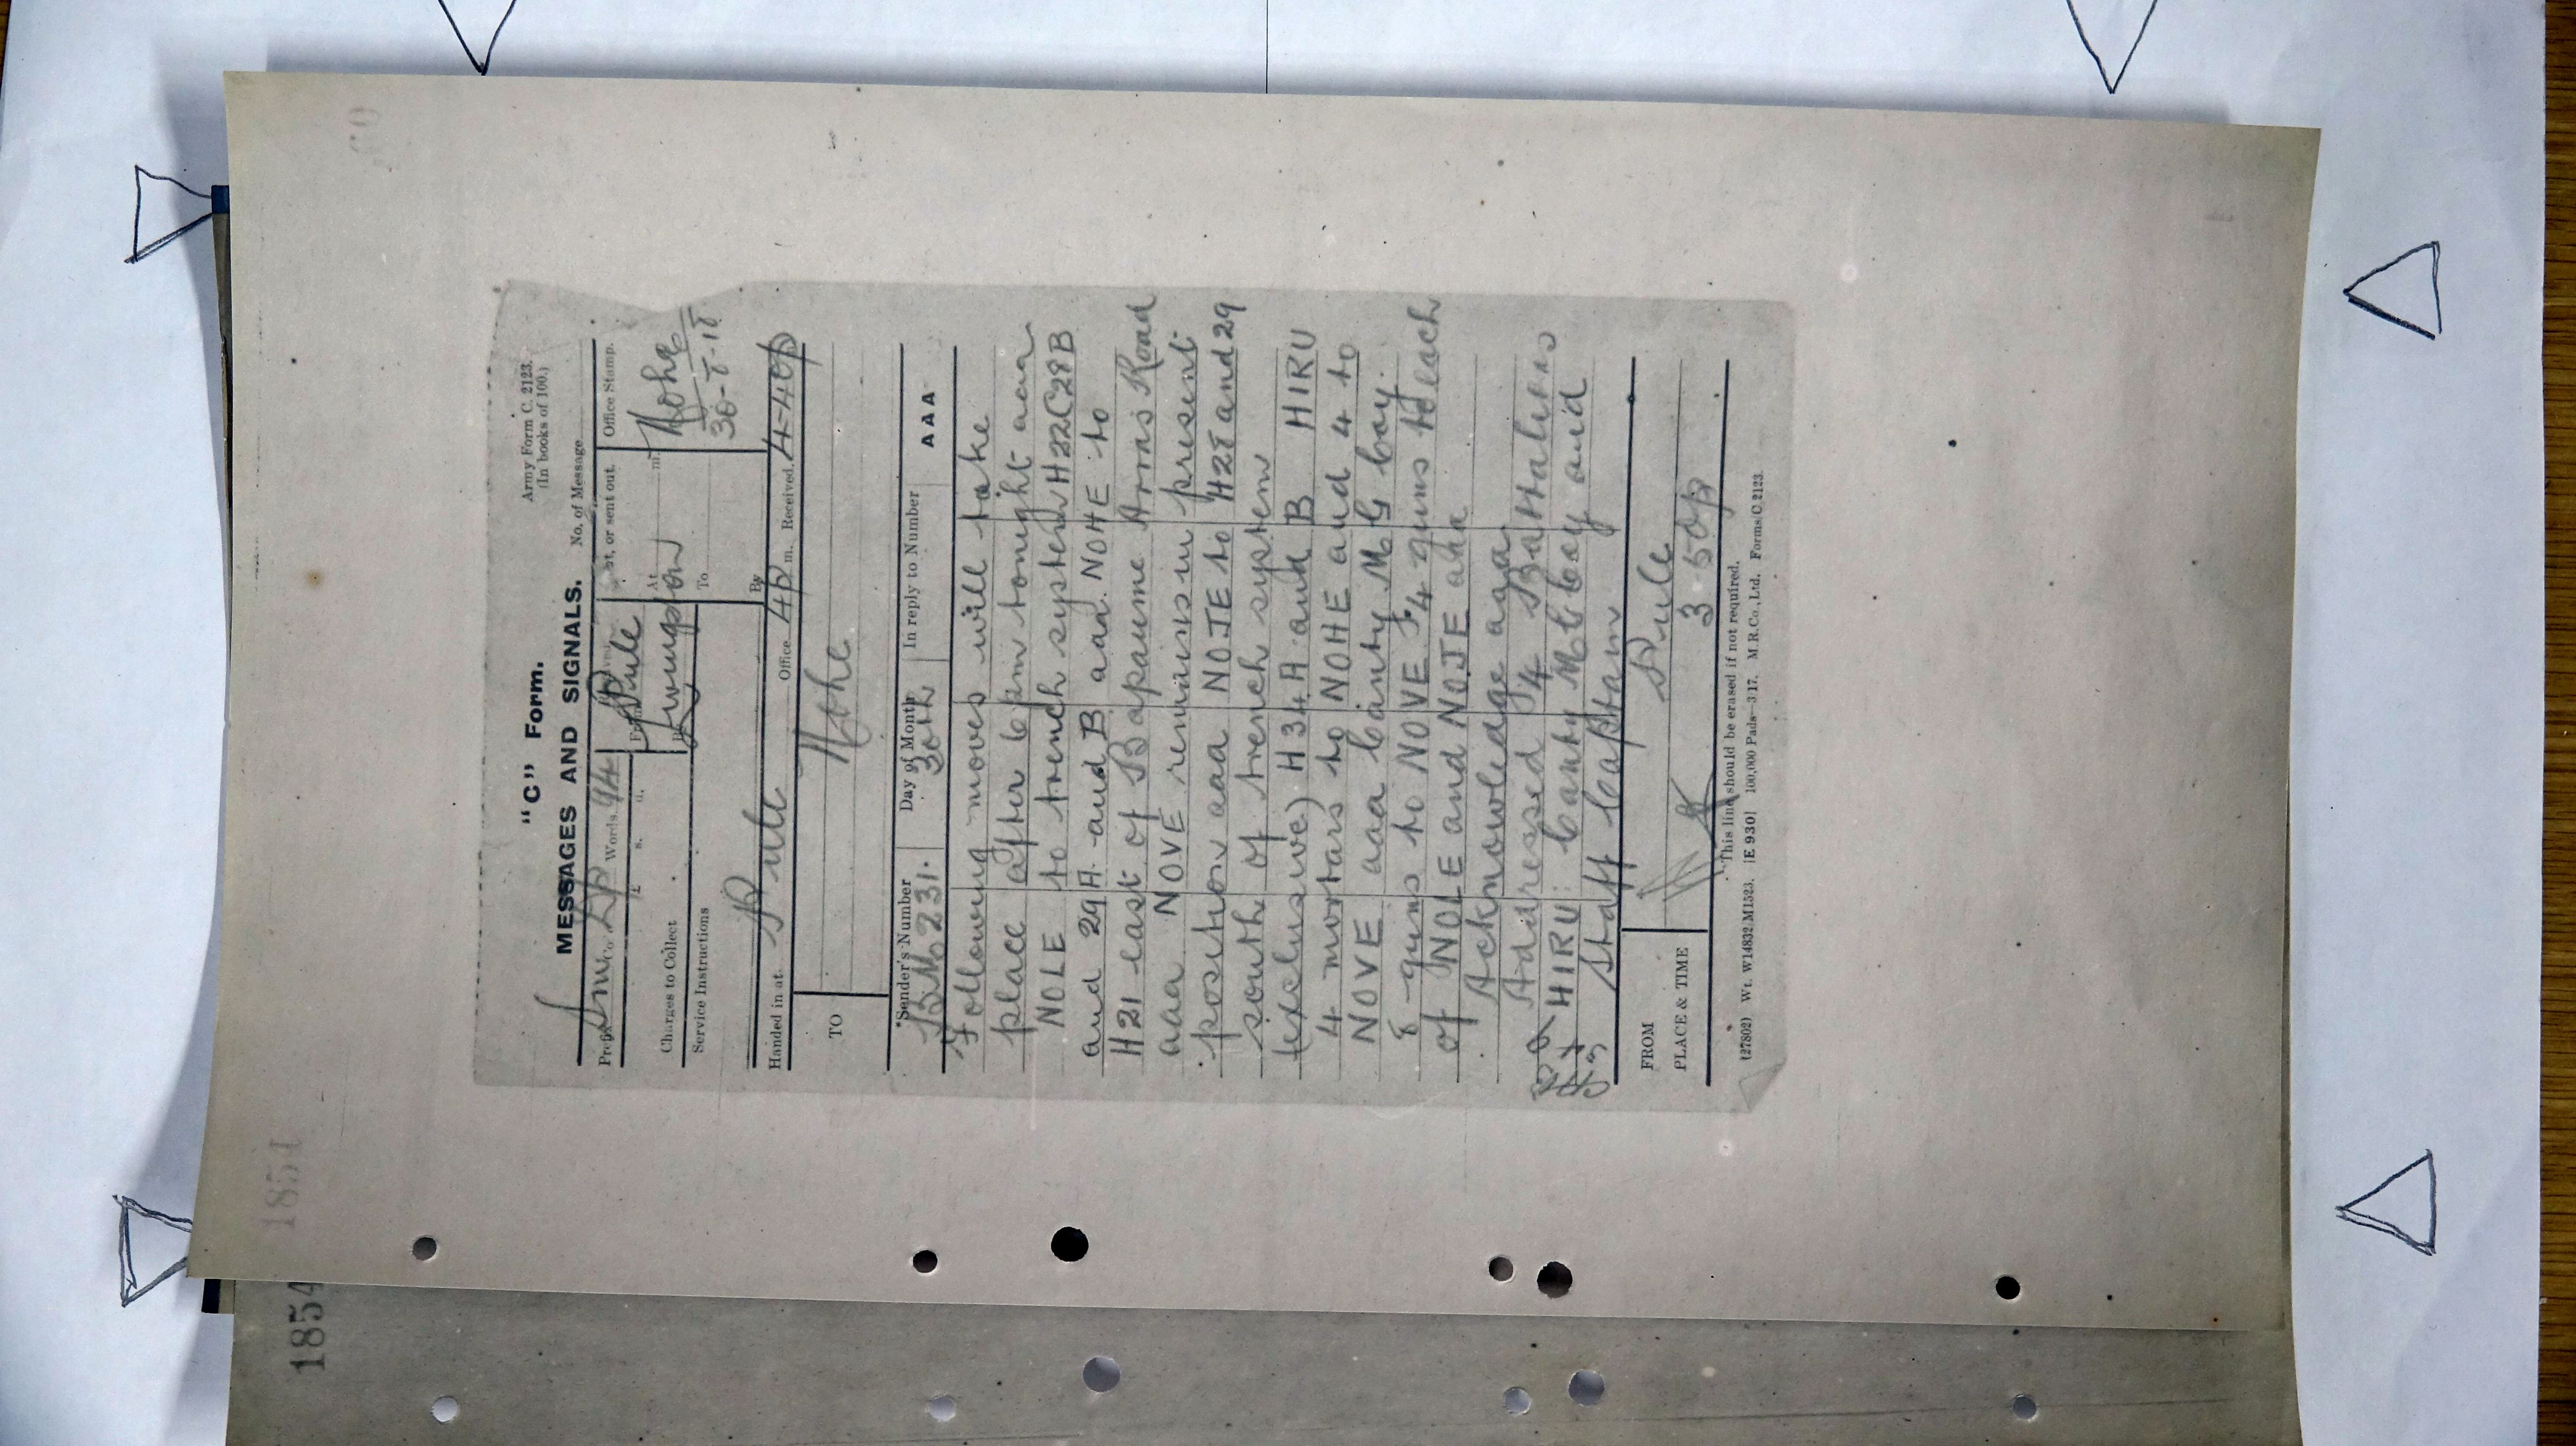 1854
1854
"C" Form.
Army Form C. 2123.
(In books of 100.)
MESSAGES AND SIGNALS.
No. of Message
Prefix Sm Words 94
£ s. d.
From Pule
By Livingston
At
m.
To
By
, or sent out.
Office Stamp.
Nohe
30-8-18
Charges to Collect
Service Instructions
Handed in at. Pule Office 4 p m. Received. 4-40p
TO Nohe
*Sender's Number BM 231. Day of Month 30th In reply to Number AAA
Following moves will take
place after 6 pm tonight aaa
NOLE to trench system H22C28B
and 29A and B aaa NOHE to
H21 east of Bapaume Arras Road
aaa NOVE remains in present
position aaa NOJE to H28 and 29
south of trench system
(exclusive) H34A and B HIRU
4 mortars to NOHE and 4 to
NOVE aaa Canty M G Coy
8 guns to NOVE & 4 guns to each
of NOLE and NOJE aaa
Acknowledge aaa
Addressed 4 Battalions
HIRU Canty M G Coy and
Staff Captain
FROM Pule
PLACE & TIME 3-50p
*This line should be erased if not required.
(27802) Wt. W14832/M1523. [E 930] 100,000 Pads—3/17. M.R.Co.,Ltd. Forms/C.2123.